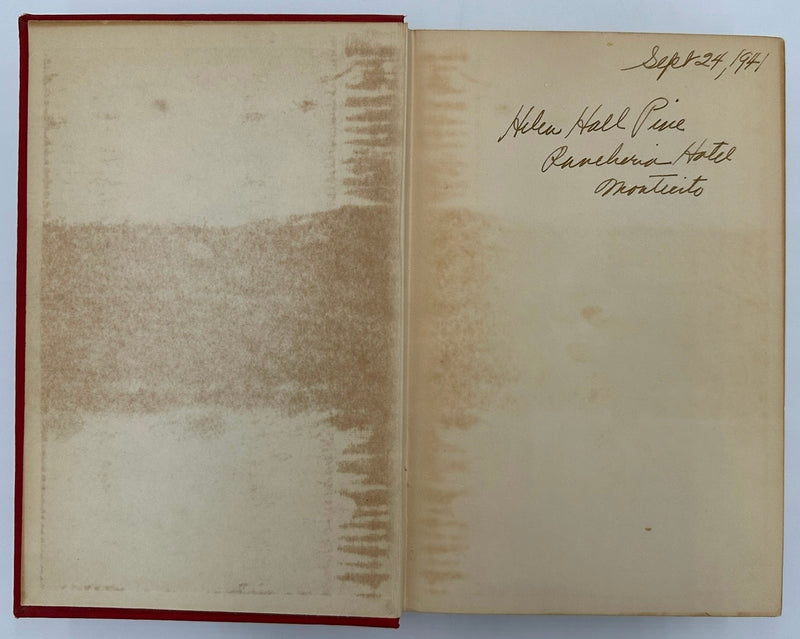 Sept 24, 1941
Helen Hall Pine
Rancheria Hotel
Monticito